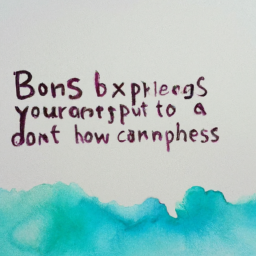 Bons bxprleegs
yourantsput to a
dont how cannphess